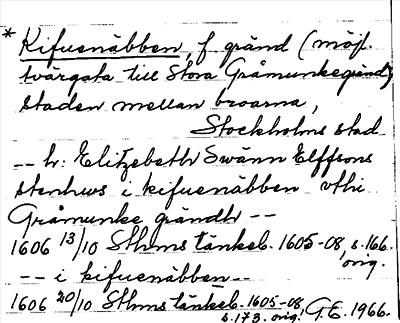 * Kifuenäbben, f gränd (möjl.
tvärgata till Stora Gråmunkegränd)
staden mellan broarna,
Stockholms stad
-- h: Elitzebeth Swänn Elffsons
stenhws i kifuenäbben vthi
Gråmunke grändh --
1606 13/10 Sthms tänkeb. 1605-08, s. 166.
orig.
-- i kifuenäbben --
1606 20/10 Sthms tänkeb. 1605-08,
s. 173. orig. G.E. 1966.